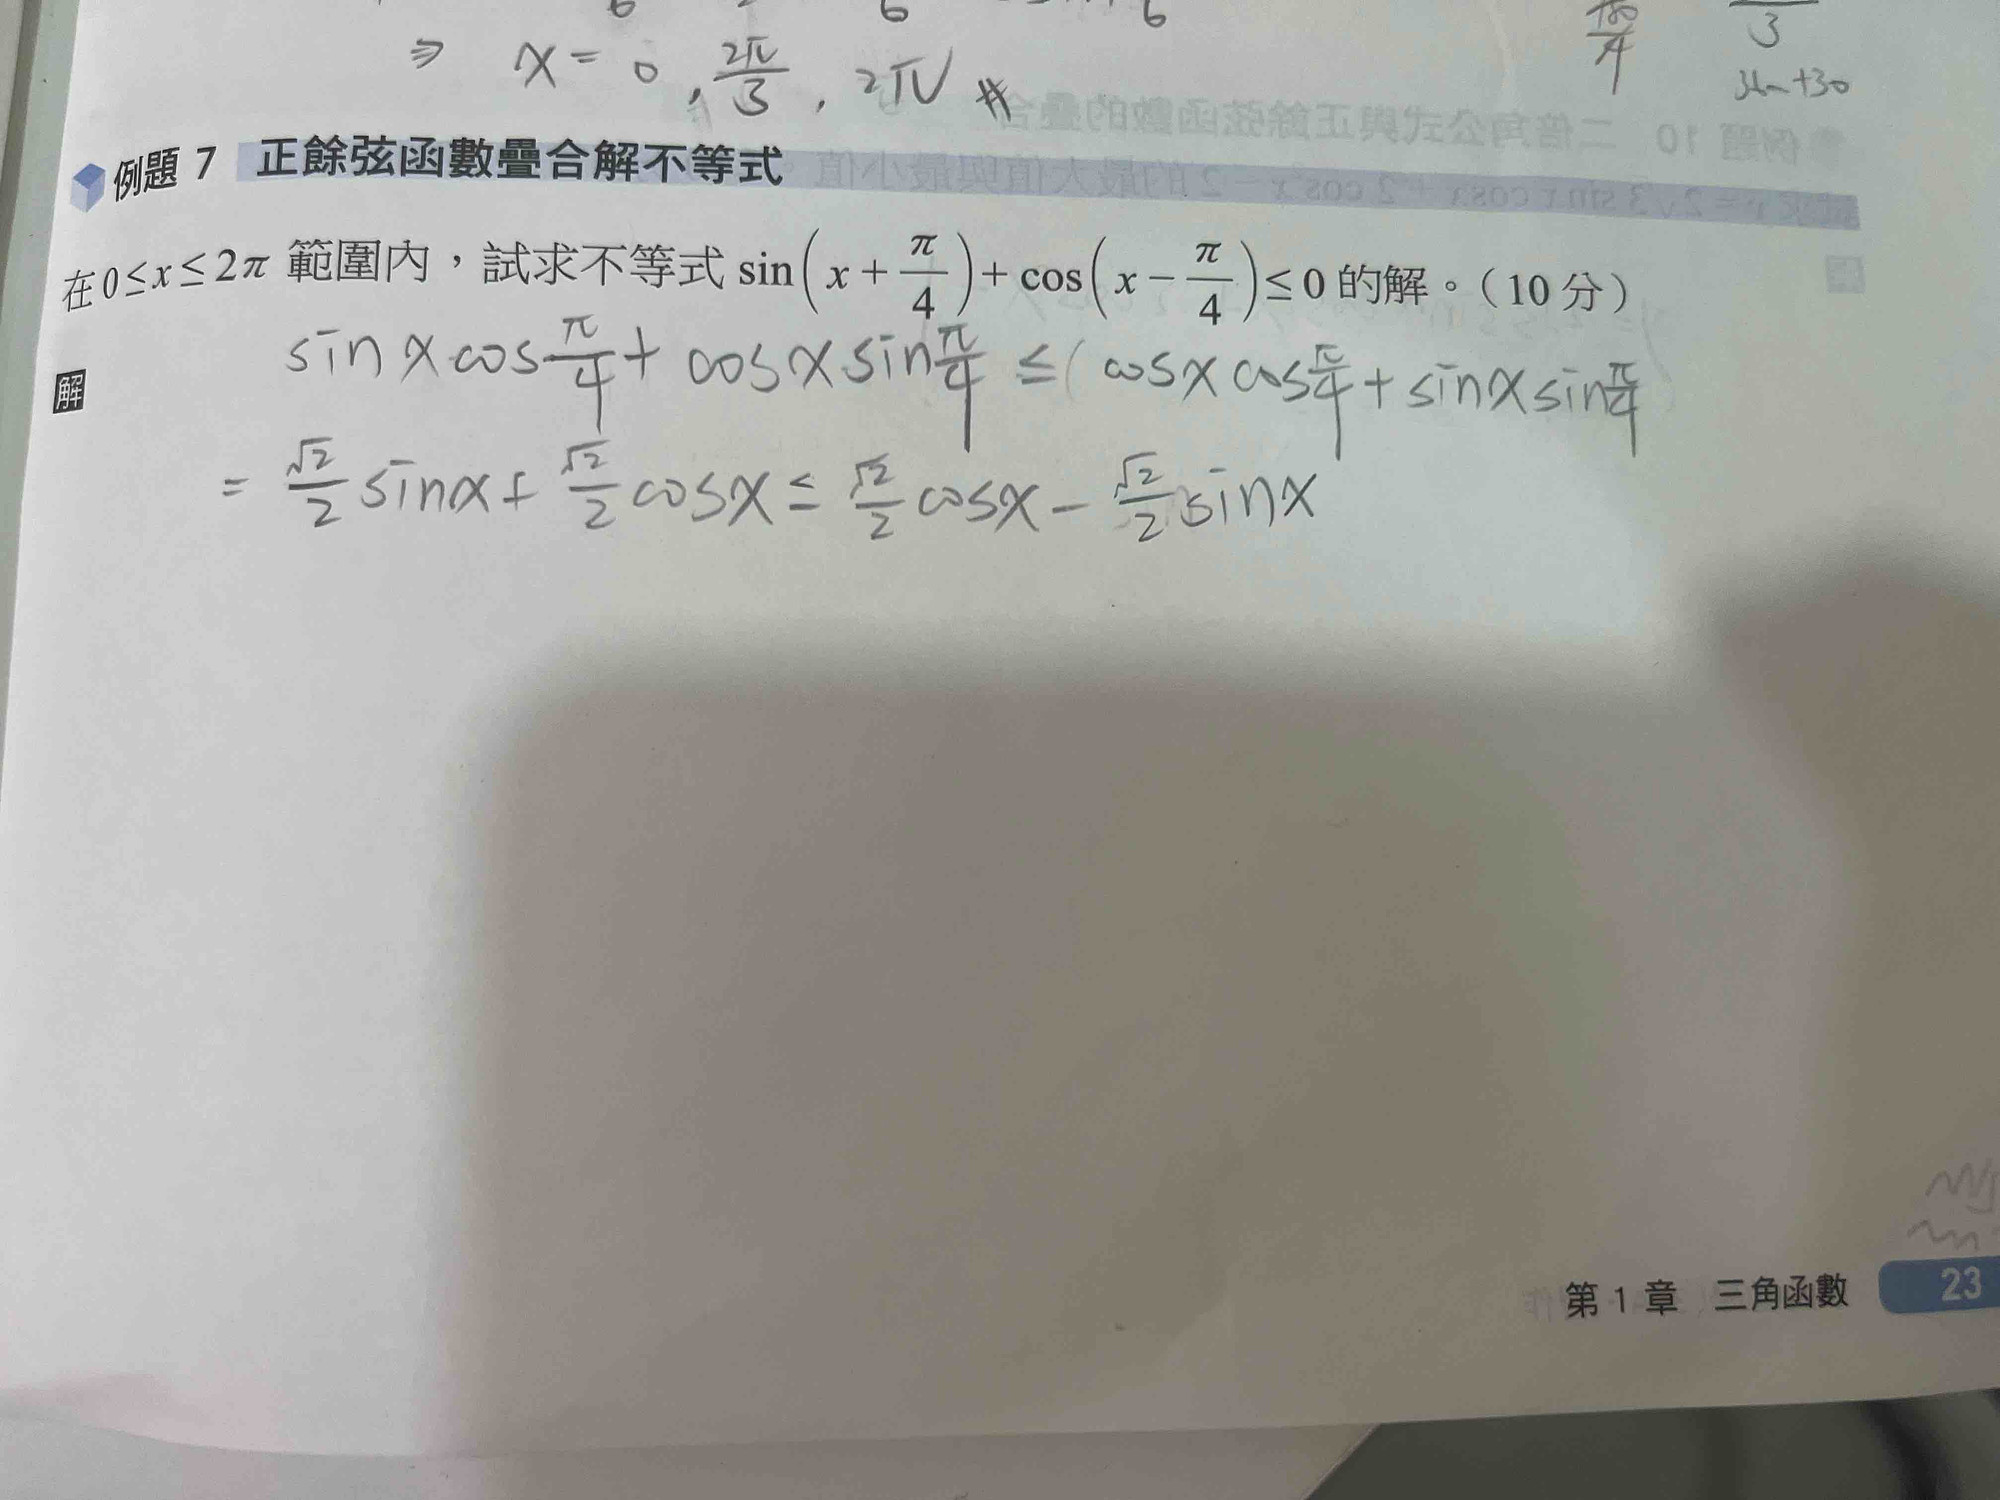 ⇒ x = 0, 2π/3, 2π #
3
36n+30
例題 7 正餘弦函數疊合解不等式
在 0≤x≤2π 範圍內，試求不等式 sin(x + π/4) + cos(x − π/4) ≤ 0 的解。（10 分）
解
sin x cos π/4 + cos x sin π/4 ≤ ( cos x cos π/4 + sin x sin π/4
= √2/2 sin x + √2/2 cos x ≤ √2/2 cos x − √2/2 sin x
第 1 章 三角函數 23